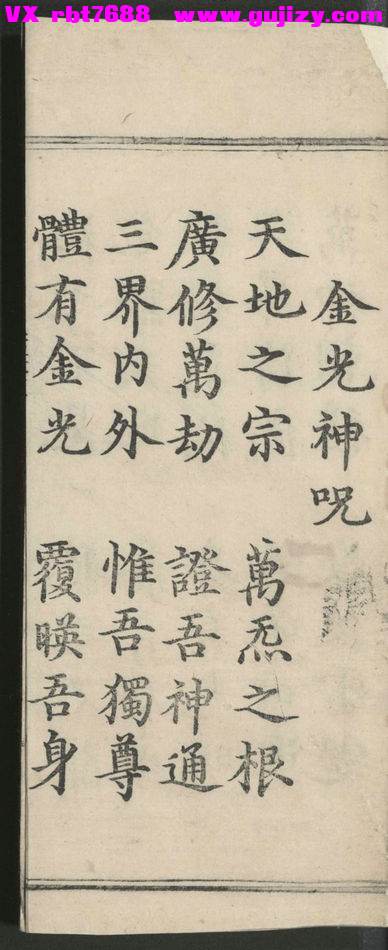 VX rbt7688 www.gujizy.com
金光神呪
天地之宗 萬炁之根
廣修萬劫 證吾神通
三界内外 惟吾獨尊
體有金光 覆暎吾身